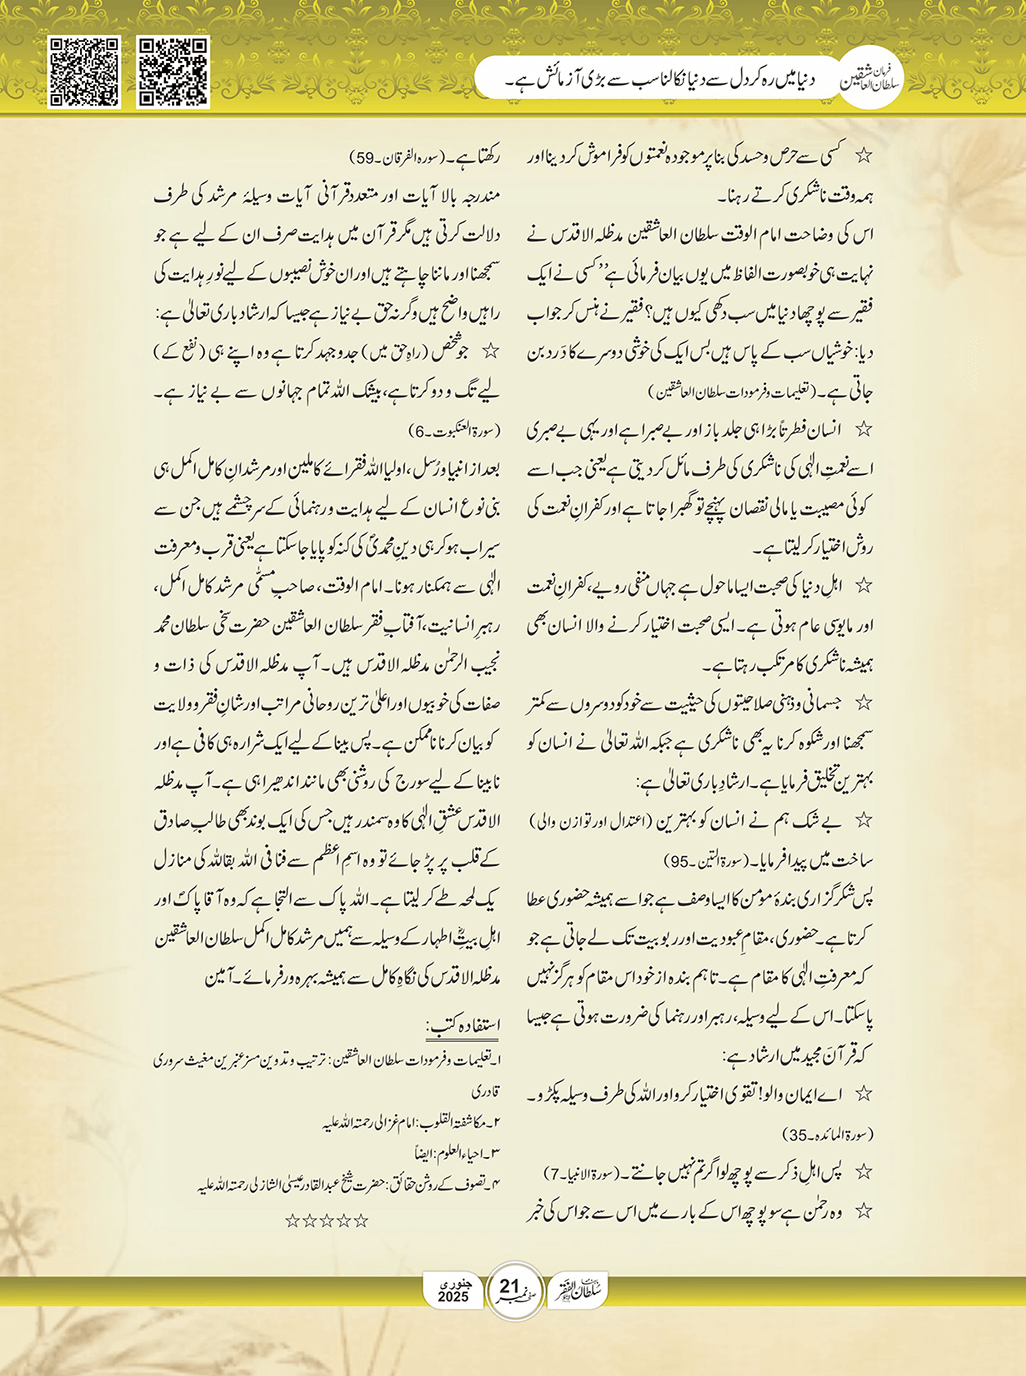 فرمان سلطان العاشقین
دنیا میں رہ کر دل سے دنیا نکالنا سب سے بڑی آزمائش ہے۔
☆ کسی سے حرص و حسد کی بنا پر موجودہ نعمتوں کو فراموش کر دینا اور
ہمہ وقت ناشکری کرتے رہنا۔
اس کی وضاحت امام الوقت سلطان العاشقین مدظلہ الاقدس نے
نہایت ہی خوبصورت الفاظ میں یوں بیان فرمائی ہے ’’کسی نے ایک
فقیر سے پوچھا دنیا میں سب دکھی کیوں ہیں؟ فقیر نے ہنس کر جواب
دیا: خوشیاں سب کے پاس ہیں بس ایک کی خوشی دوسرے کا دَرد بن
جاتی ہے۔ (تعلیمات و فرمودات سلطان العاشقین)
☆ انسان فطرتاً بڑا ہی جلد باز اور بے صبرا ہے اور یہی بے صبری
اسے نعمتِ الٰہی کی ناشکری کی طرف مائل کر دیتی ہے یعنی جب اسے
کوئی مصیبت یا مالی نقصان پہنچے تو گھبرا جاتا ہے اور کفرانِ نعمت کی
روش اختیار کر لیتا ہے۔
☆ اہلِ دنیا کی صحبت ایسا ماحول ہے جہاں منفی رویے، کفرانِ نعمت
اور مایوسی عام ہوتی ہے۔ ایسی صحبت اختیار کرنے والا انسان بھی
ہمیشہ ناشکری کا مرتکب رہتا ہے۔
☆ جسمانی و ذہنی صلاحیتوں کی حیثیت سے خود کو دوسروں سے کمتر
سمجھنا اور شکوہ کرنا یہ بھی ناشکری ہے جبکہ اللہ تعالیٰ نے انسان کو
بہترین تخلیق فرمایا ہے۔ ارشادِ باری تعالیٰ ہے:
☆ بے شک ہم نے انسان کو بہترین (اعتدال اور توازن والی)
ساخت میں پیدا فرمایا۔ (سورۃ التین۔95)
پس شکر گزاری بندۂ مومن کا ایسا وصف ہے جو اسے ہمیشہ حضوری عطا
کرتا ہے۔ حضوری، مقامِ عبودیت اور ربوبیت تک لے جاتی ہے جو
کہ معرفتِ الٰہی کا مقام ہے۔ تاہم بندہ از خود اس مقام کو ہرگز نہیں
پا سکتا۔ اس کے لیے وسیلہ، رہبر اور رہنما کی ضرورت ہوتی ہے جیسا
کہ قرآنِ مجید میں ارشاد ہے:
☆ اے ایمان والو! تقویٰ اختیار کرو اور اللہ کی طرف وسیلہ پکڑو۔
(سورۃ المائدہ۔35)
☆ پس اہلِ ذکر سے پوچھ لو اگر تم نہیں جانتے۔ (سورۃ الانبیا۔7)
☆ وہ رحمٰن ہے سو پوچھ اس کے بارے میں اس سے جو اس کی خبر
رکھتا ہے۔ (سورہ الفرقان۔59)
مندرجہ بالا آیات اور متعدد قرآنی آیات وسیلۂ مرشد کی طرف
دلالت کرتی ہیں مگر قرآن میں ہدایت صرف ان کے لیے ہے جو
سمجھنا اور ماننا چاہتے ہیں اور ان خوش نصیبوں کے لیے نورِ ہدایت کی
راہیں واضح ہیں وگرنہ حق بے نیاز ہے جیسا کہ ارشاد باری تعالیٰ ہے:
☆ جو شخص (راہِ حق میں) جدوجہد کرتا ہے وہ اپنے ہی (نفع کے)
لیے تگ و دو کرتا ہے، بیشک اللہ تمام جہانوں سے بے نیاز ہے۔
(سورۃ العنکبوت۔6)
بعد از انبیا و رُسل، اولیا اللہ فقرائے کاملین اور مرشدانِ کامل اکمل ہی
بنی نوع انسان کے لیے ہدایت و رہنمائی کے سرچشمے ہیں جن سے
سیراب ہو کر ہی دینِ محمدیؐ کی کنہ کو پایا جا سکتا ہے یعنی قرب و معرفت
الٰہی سے ہمکنار ہونا۔ امام الوقت، صاحبِ مسمّٰی مرشد کامل اکمل،
رہبرِ انسانیت، آفتابِ فقر سلطان العاشقین حضرت سخی سلطان محمد
نجیب الرحمٰن مدظلہ الاقدس ہیں۔ آپ مدظلہ الاقدس کی ذات و
صفات کی خوبیوں اور اعلیٰ ترین روحانی مراتب اور شانِ فقر و ولایت
کو بیان کرنا ناممکن ہے۔ پس بینا کے لیے ایک شرارہ ہی کافی ہے اور
نابینا کے لیے سورج کی روشنی بھی مانند اندھیرا ہی ہے۔ آپ مدظلہ
الاقدس عشقِ الٰہی کا وہ سمندر ہیں جس کی ایک بوند بھی طالبِ صادق
کے قلب پر پڑ جائے تو وہ اسمِ اعظم سے فنا فی اللہ بقا للہ کی منازل
یک لمحہ طے کر لیتا ہے۔ اللہ پاک سے التجا ہے کہ وہ آقا پاکؐ اور
اہلِ بیتؓ اطہار کے وسیلہ سے ہمیں مرشد کامل اکمل سلطان العاشقین
مدظلہ الاقدس کی نگاہِ کامل سے ہمیشہ بہرہ ور فرمائے۔ آمین
استفادہ کتب:
۱۔ تعلیمات و فرمودات سلطان العاشقین: ترتیب و تدوین مسز عنبرین مغیث سروری
قادری
۲۔ مکاشفتہ القلوب: امام غزالی رحمتہ اللہ علیہ
۳۔ احیاء العلوم: ایضاً
۴۔ تصوف کے روشن حقائق: حضرت شیخ عبدالقادر عیسیٰ الشاذلی رحمتہ اللہ علیہ
☆☆☆☆☆
سُلطان الفقر
صفحہ نمبر 21
جنوری
2025